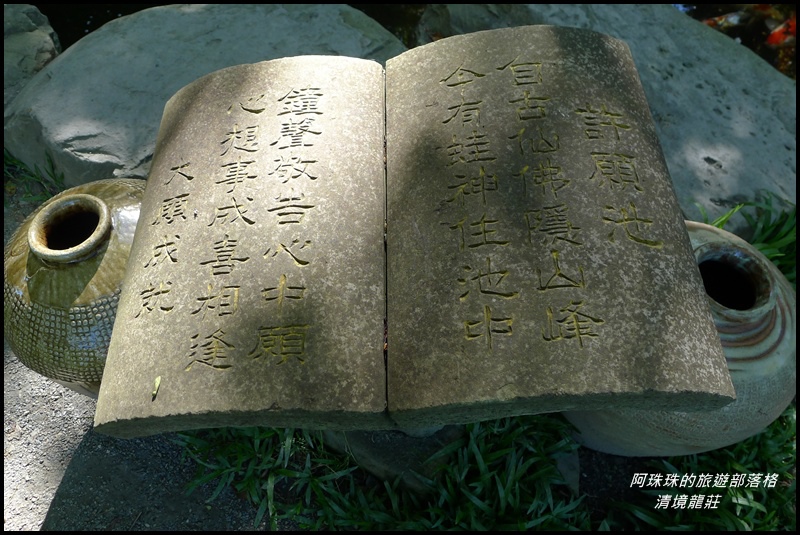 許願池
自古仙佛隱山峰
今有蛙神住池中
鐘聲敬告心中願
心想事成喜相逢
大願成就
阿珠珠的旅遊部落格
清境龍莊